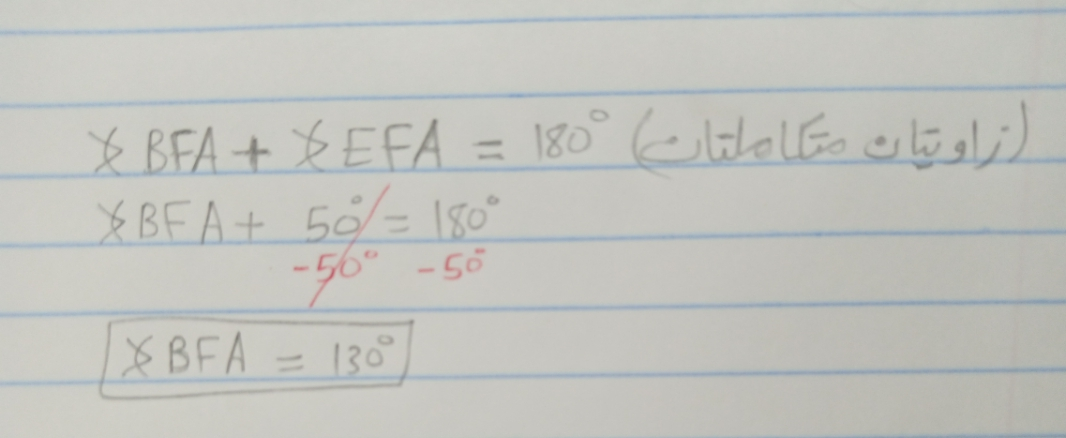 ∢BFA + ∢EFA = 180° (زاويتان متكاملتان)
∢BFA + 50° = 180°
-50° -50°
∢BFA = 130°